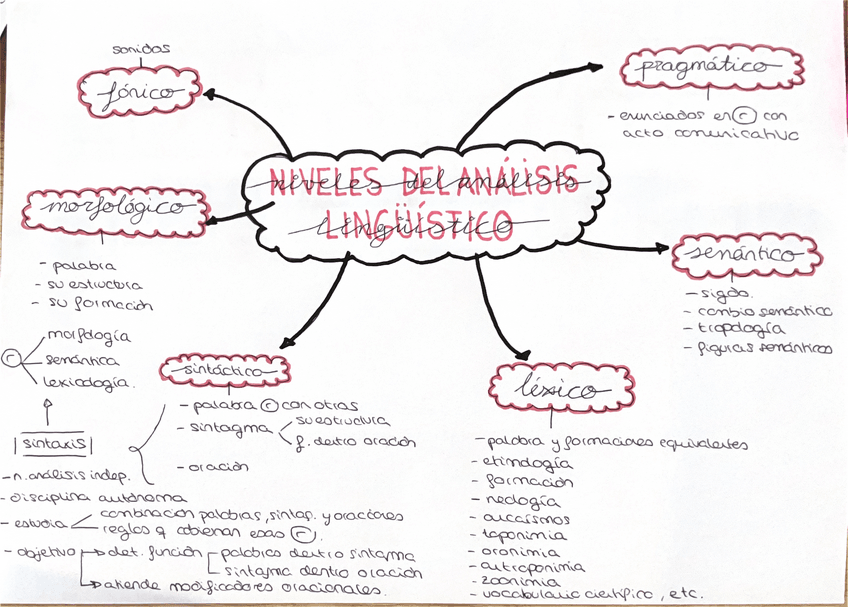 sonidos
fónico
pragmático
- enunciados en r con
acto comunicativo
NIVELES DEL ANÁLISIS
LINGÜÍSTICO
niveles del análisis
lingüístico
morfológico
- palabra
- su estructura
- su formación
semántico
- sigdo.
- cambio semántico
- tropología
- figuras semánticas
r
morfología
semántica
lexicología.
sintaxis
- n. análisis indep.
- disciplina autónoma
- estudia
combinación palabras, sintag. y oraciones
reglas q gobiernan esas r.
- objetivo
det. función
palabras dentro sintagma
sintagma dentro oración
atiende modificadores oracionales.
sintáctico
- palabra r con otras
- sintagma
su estructura
f. dentro oración
- oración
léxico
- palabra y formaciones equivalentes
- etimología
- formación
- neología
- arcaísmos
- toponimia
- oronimia
- antroponimia
- zoonimia
- vocabulario científico, etc.